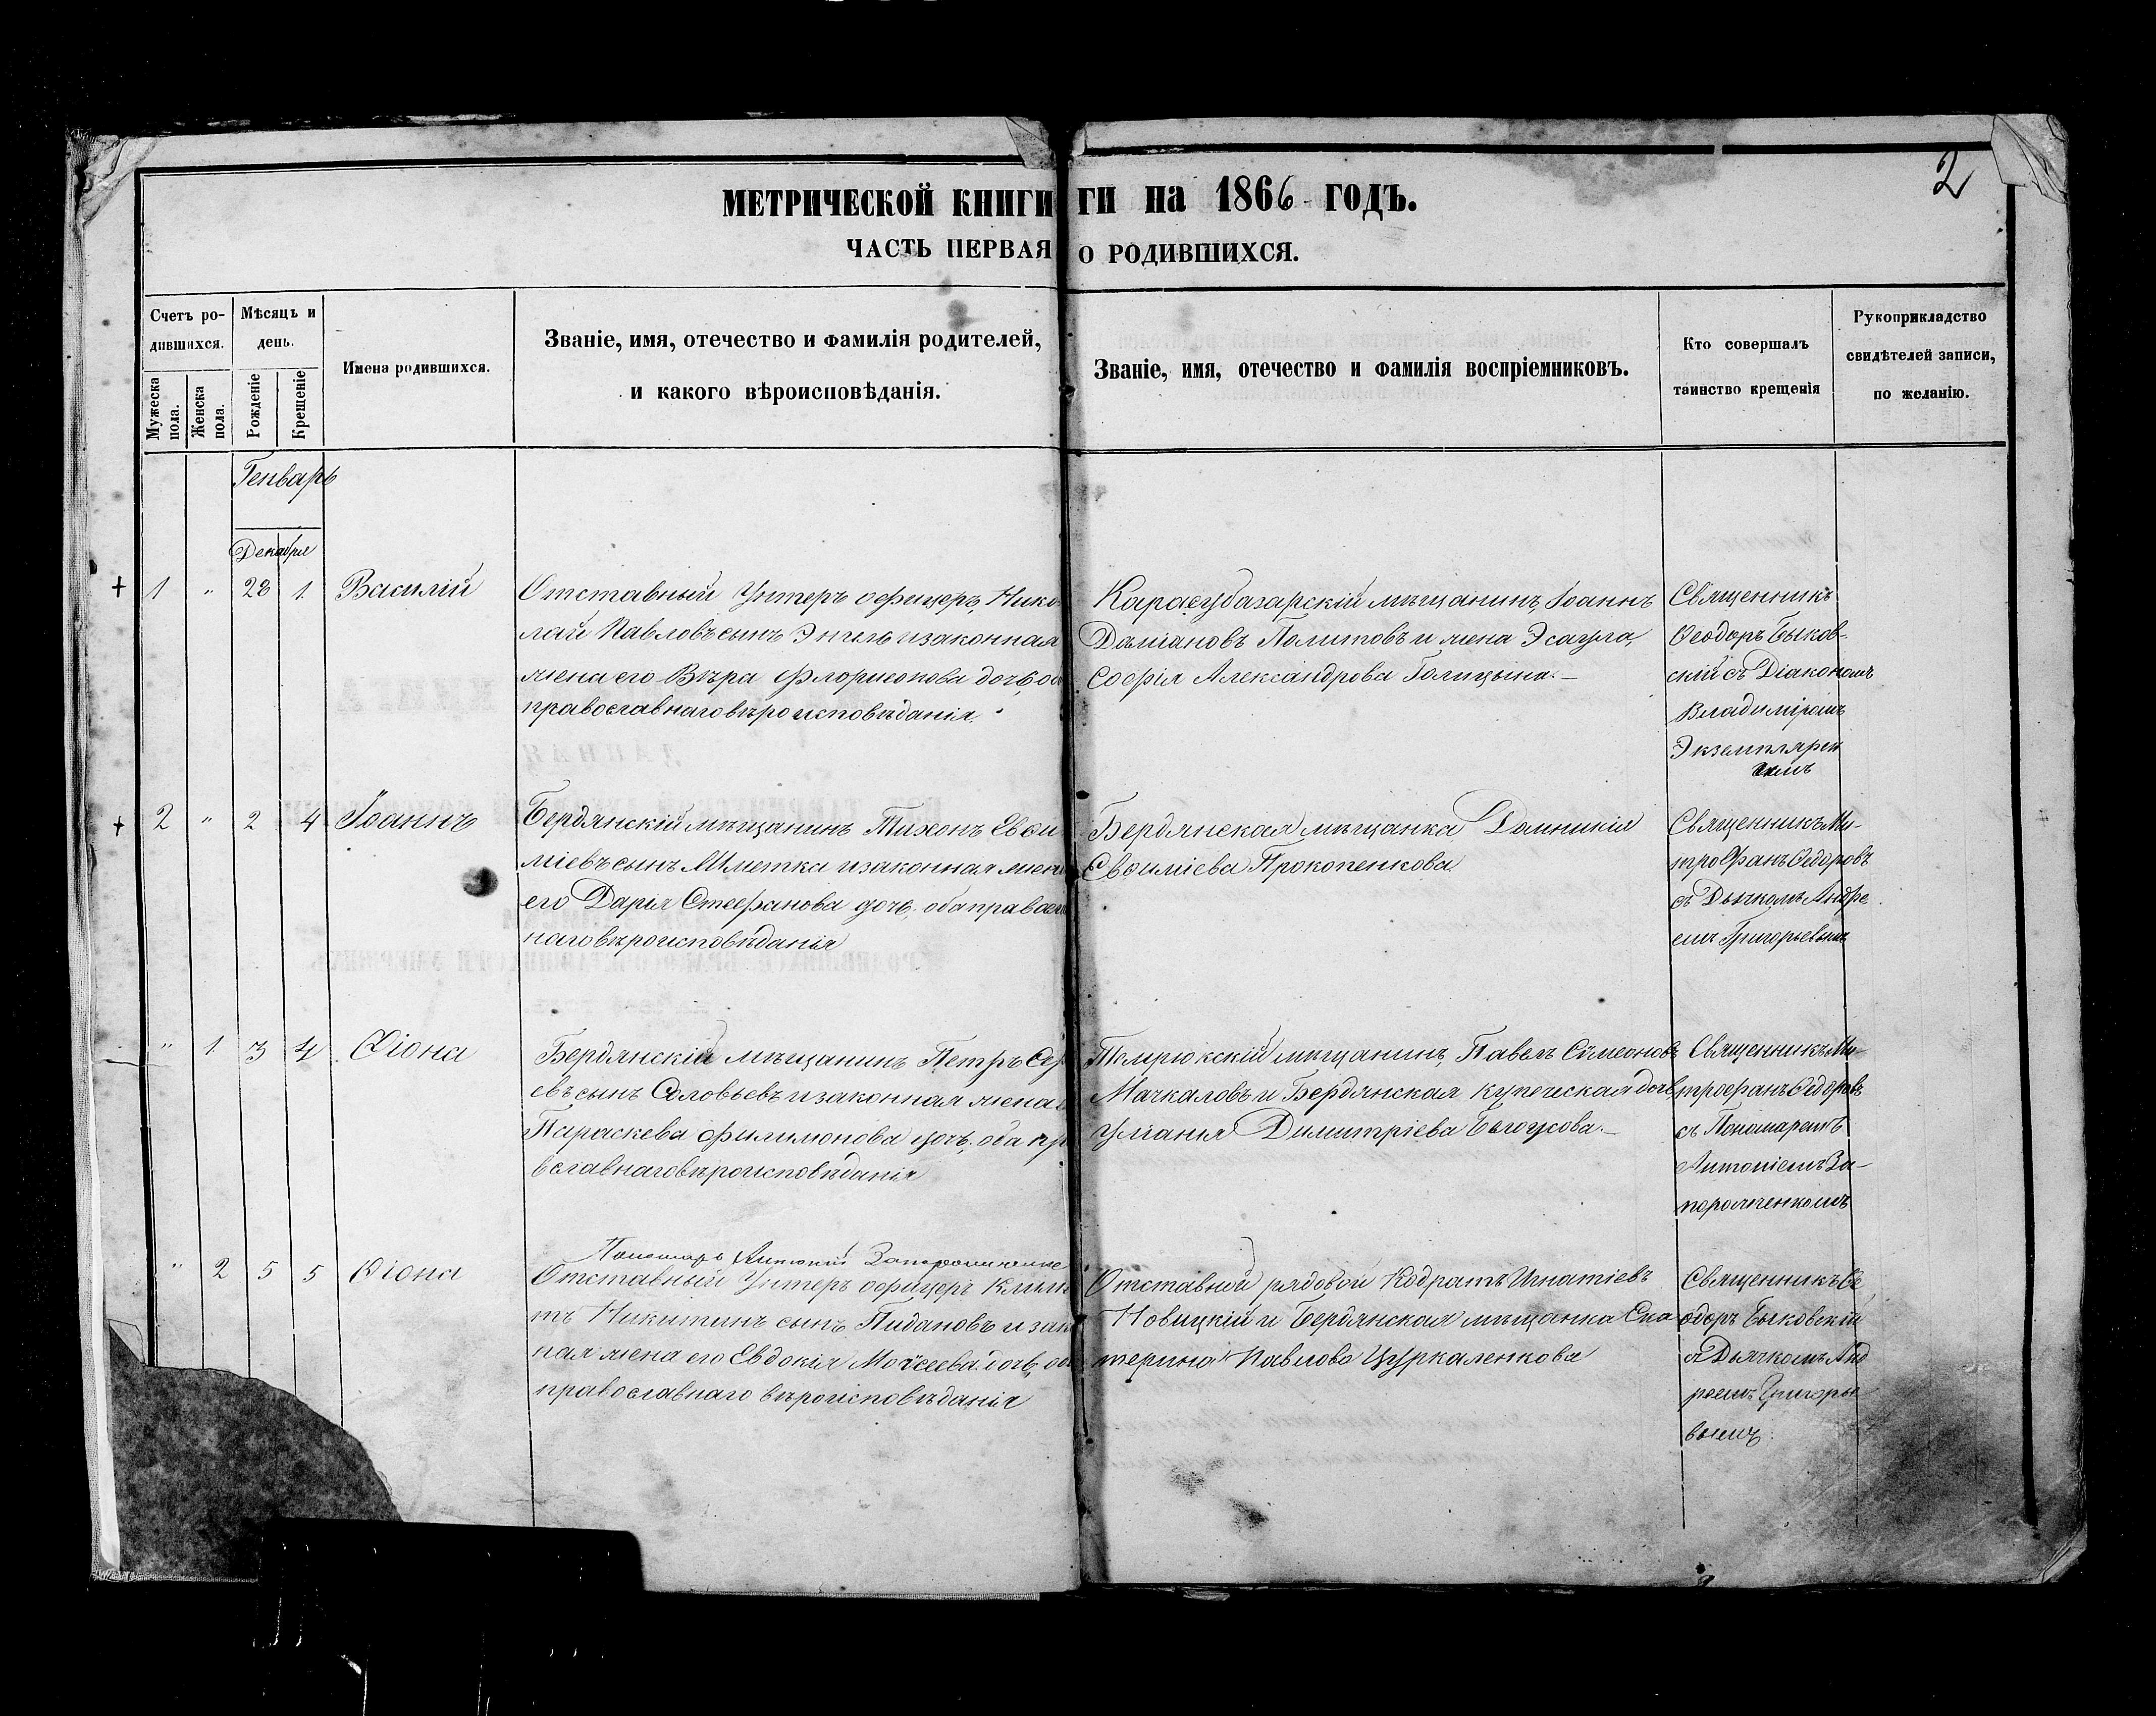 2
МЕТРИЧЕСКОЙ КНИГИ
ГИ на 1866 ГОДЪ.
ЧАСТЬ ПЕРВАЯ
О РОДИВШИХСЯ.
Счетъ ро-
дившихся.
Мужеска
пола.
Женска
пола.
Мѣсяцъ и
день.
Рожденіе
Крещеніе
Имена родившихся.
Званіе, имя, отечество и фамилія родителей,
и какого вѣроисповѣданія.
Званіе, имя, отечество и фамилія воспріемниковъ.
Кто совершалъ
таинство крещенія
Рукоприкладство
свидѣтелей записи,
по желанію.
Генварь
Декабря
+ 1 „ 28 1. Василій
Отставный Унтеръ офицеръ, Нико
лай Павловъ сынъ и законная
жена его Вѣра дочь, об
православнаго вѣроисповѣданія.
Карасубазарскій мѣщанинъ, Іоаннъ
Даміановъ Политовъ и жена Эсаула,
Софія Александрова Голицына. –
Священникъ
Ѳеодоръ Быков-
скій съ Діакономъ
Владиміромъ
Экземпляр
скимъ
+ 2 „ 2 4 Іоаннъ
Бердянскій мѣщанинъ Тихонъ Евѳи
міевъ сынъ и законная жена
его Дарія Стефанова дочь, оба правосл
наго вѣроисповѣданія
Бердянская мѣщанка Домникія
Евѳиміева Прокопенкова.
Священникъ Ми-
трофанъ Ѳедоровъ
съ Дьячкомъ Андре
емъ Григорьевымъ
„ 1. 3 4 Ѳіона
Бердянскій мѣщанинъ Петръ Сер
евъ сынъ Соловьевъ и законная жена е
Параскева Филимонова дочь, оба пр
вславнаго вѣроисповѣданія
Темрюкскій мѣщанинъ, Павелъ Сѵмеоновъ
Мачкаловъ и Бердянская купеческая дочь,
Димитріева Бѣлоусова. –
Священникъ Ми-
трофанъ Ѳедоровъ
съ Пономаремъ
Антоніемъ За-
порожченкомъ
Пономарь Антоній
„ 2 5 5 Ѳіона
Отставный Унтеръ офицеръ Клим
тъ Никитинъ сынъ, Пидановъ и зак
ная жена его Евдокія Моѵсеева дочь, об
православнаго вѣроисповѣданія
Отставной рядовой Кодратъ Игнатіевъ
Новицкій и Бердянская мѣщанка Ека
терина Павлова Цуркаленкова
Священникъ Ѳе
одоръ Быковскій
съ Дьячкомъ Анд
реемъ Григорье
вымъ.